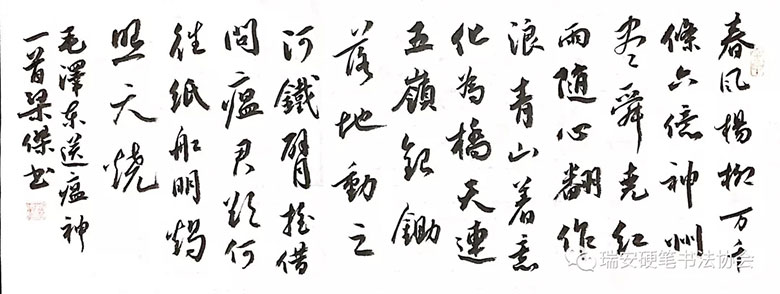 春风楊柳万千
條六億神州
尽舜尧红
雨随心翻作
浪青山着意
化為橋天連
五嶺銀鋤
落地動三
河鐵臂摇借
問瘟君欲何
往纸船明燭
照天燒
毛澤东送瘟神
一首梁傑书
瑞安硬笔书法协会